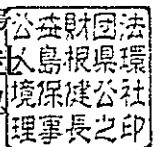 公益財団法
人島根県環
境保健公社
理事長之印